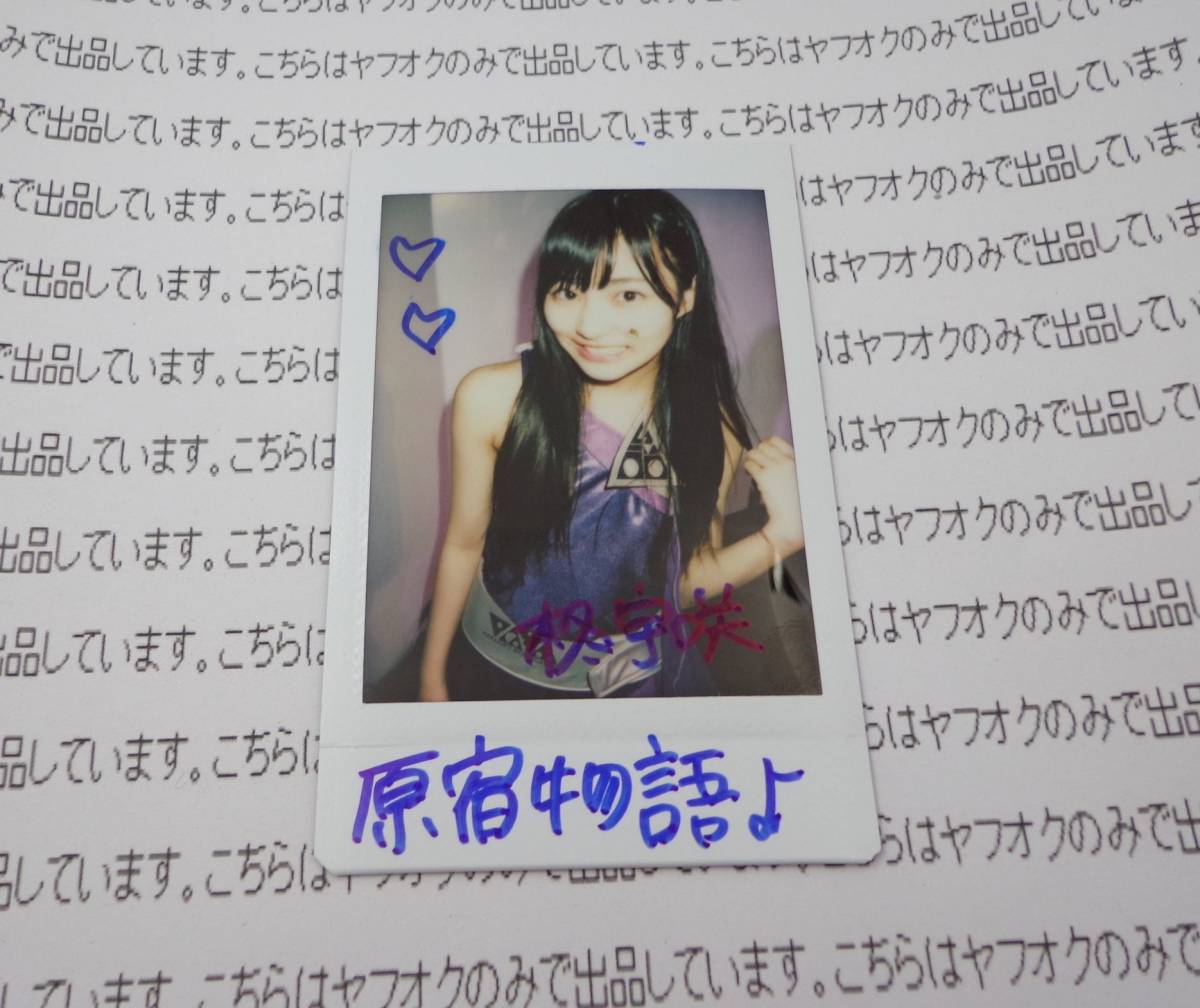 ています。こちらはヤフオクのみで出品しています。
みで出品しています。こちらはヤフオクのみで出品しています。こちらはヤフオクのみで出品しています。
みで出品しています。こちらはヤフオクのみで出品しています。こちらはヤフオクのみで出品しています。
で出品しています。こちらは
はヤフオクのみで出品しています
で出品しています。こちらは
はヤフオクのみで出品していま
で出品しています。こちらは
はヤフオクのみで出品してい
出品しています。こちら
はヤフオクのみで出品して
出品しています。こちらは
らはヤフオクのみで出品し
品しています。こちら
らはヤフオクのみで出品
品しています。こちら
らはヤフオクのみで出品
柊宇咲
原宿物語♪
品しています。こちらは
らはヤフオクのみで出
しています。こちらはヤフオクのみで出品しています。こちらはヤフオクのみで